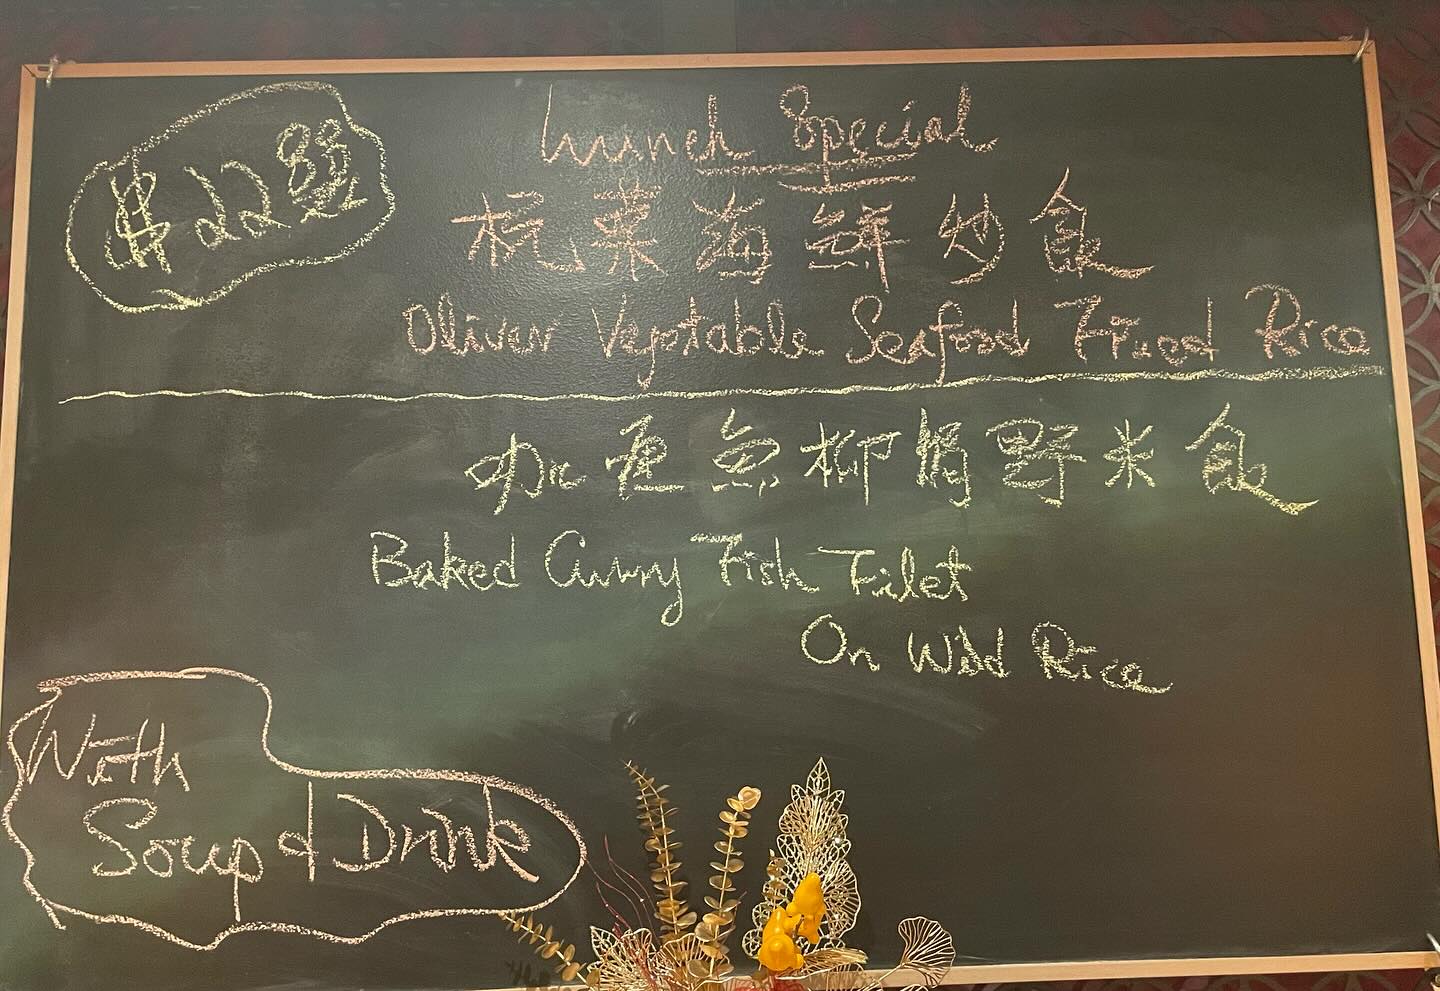 $22.88
Lunch Special
菜海鮮炒飯
Oliver Vegetable Seafood Fried Rice
咖喱魚柳焗野米飯
Baked Curry Fish Filet
On Wild Rice
With
Soup & Drink